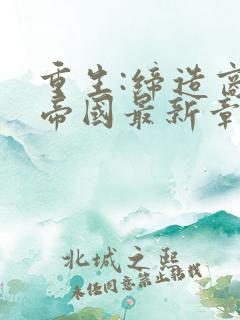 重生:缔造商
帝國最新章
北城之熙
未经同意禁止转载